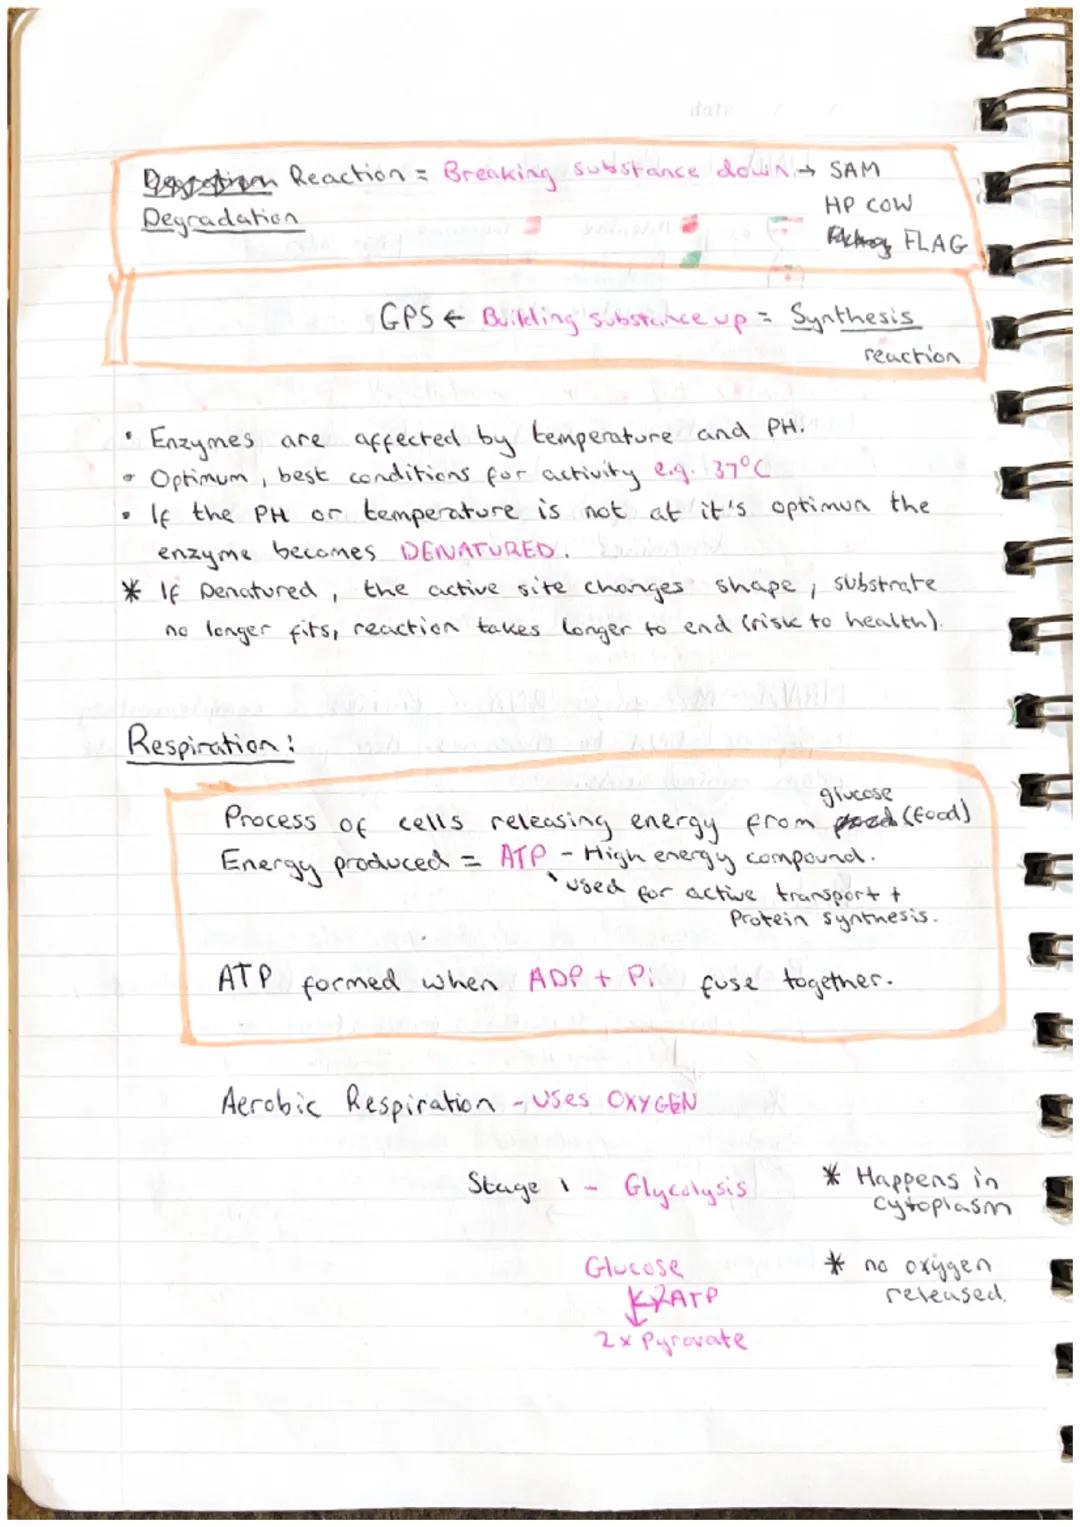 Reaction = Breaking substance down → SAM
Degradation
HP COW
FLAG
GPS ← Building substance up = Synthesis
reaction
• Enzymes are affected by temperature and PH.
• Optimum, best conditions for activity e.g. 37°C
• If the PH or temperature is not at it's optimun the
enzyme becomes DENATURED.
* If Denatured, the active site changes shape, substrate
no longer fits, reaction takes longer to end (risk to health).
Respiration:
glucose
Process of cells releasing energy from (food)
Energy produced = ATP - High energy compound.
used for active transport +
Protein synthesis.
ATP formed when ADP + Pi fuse together.
Aerobic Respiration - uses OXYGEN
Stage 1 - Glycolysis
* Happens in
cytoplasm
Glucose
* no oxygen
released.
2ATP
2x Pyrovate